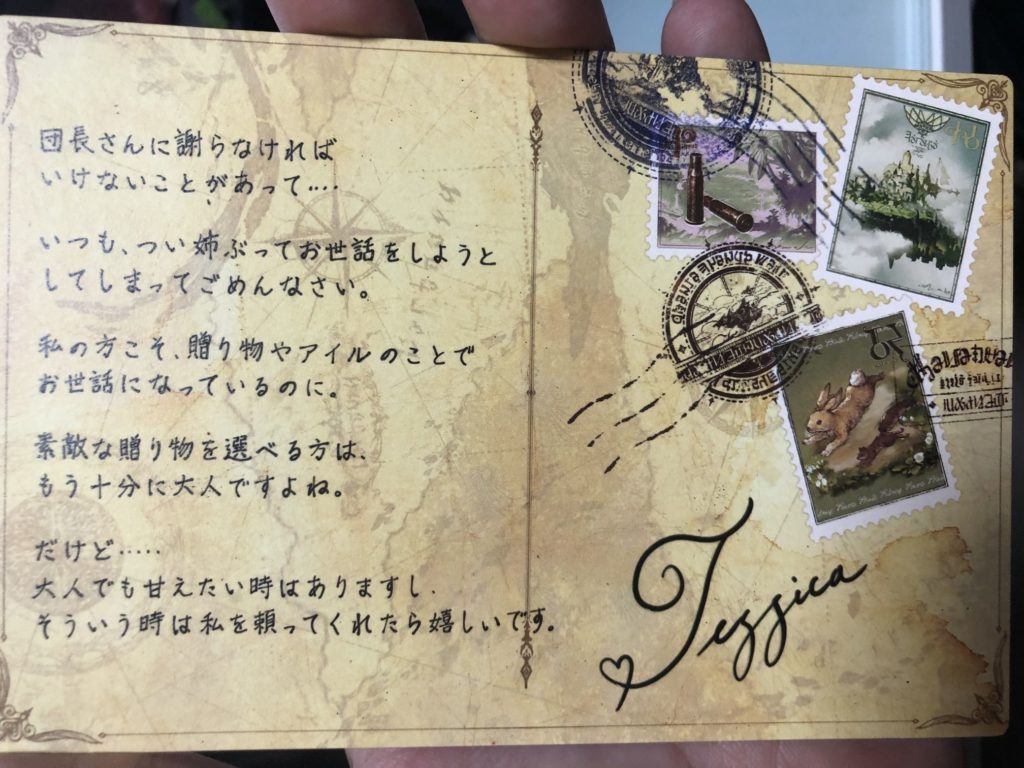 団長さんに謝らなければ
いけないことがあって‥‥
いつも、つい姉ぶってお世話をしようと
してしまってごめんなさい。
私の方こそ、贈り物やアイルのことで
お世話になっているのに。
素敵な贈り物を選べる方は、
もう十分に大人ですよね。
だけど‥‥‥
大人でも甘えたい時はありますし、
そういう時は私を頼ってくれたら嬉しいです。
Jessica